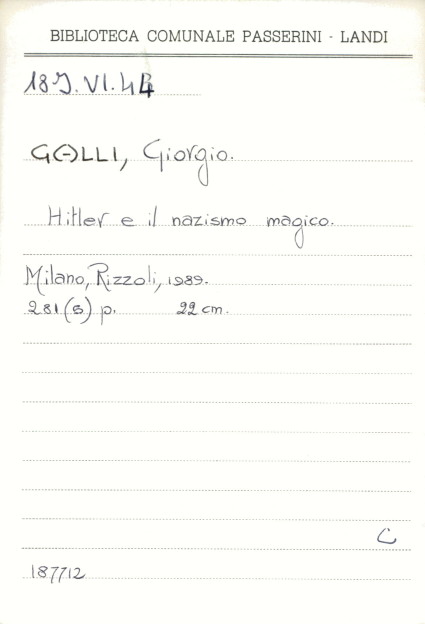 BIBLIOTECA COMUNALE PASSERINI - LANDI
18J.VI.44
GALLI, Giorgio.
Hitler e il nazismo magico.
Milano, Rizzoli, 1989.
281(8) p. 22 cm.
C
187712